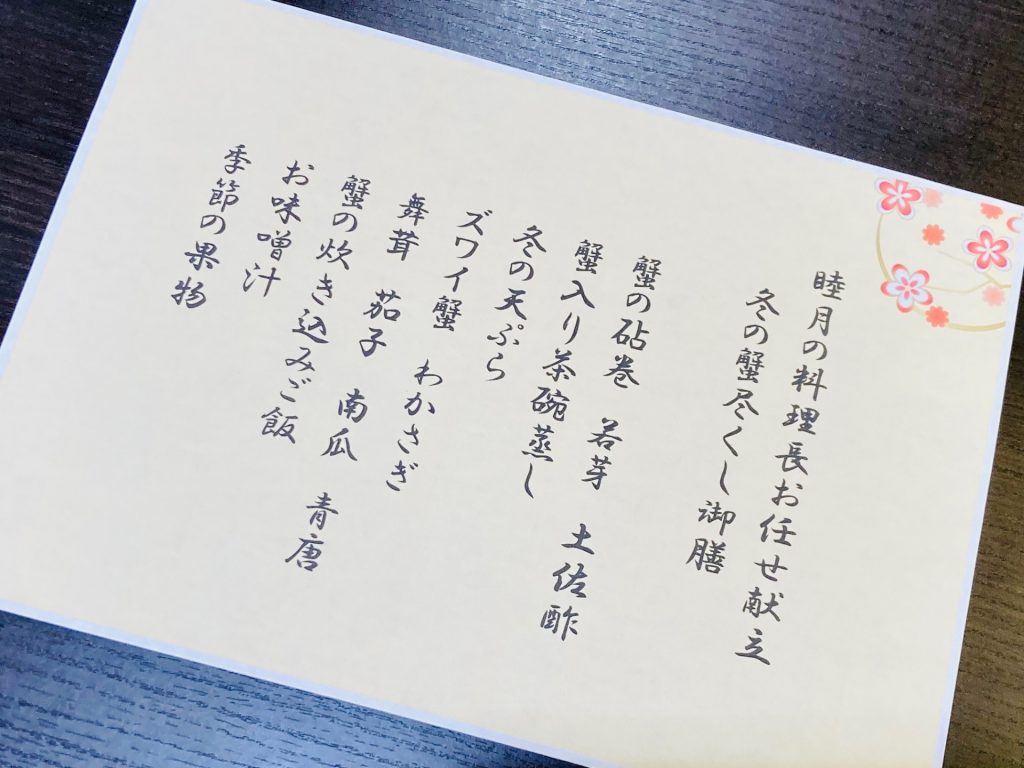 睦月の料理長お任せ献立
冬の蟹尽くし御膳
蟹の砧巻　若芽　土佐酢
蟹入り茶碗蒸し
冬の天ぷら
ズワイ蟹　わかさぎ
舞茸　茄子　南瓜　青唐
蟹の炊き込みご飯
お味噌汁
季節の果物